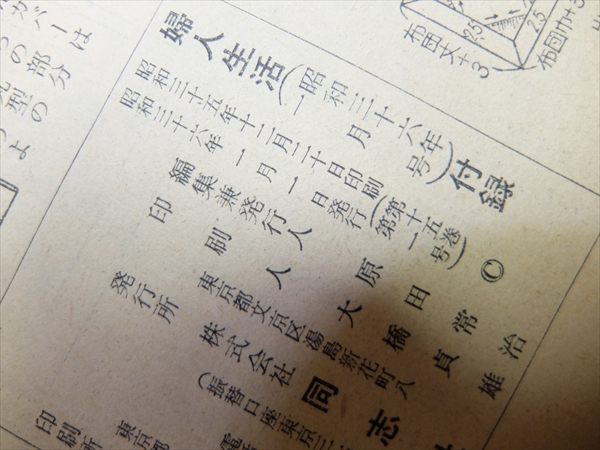 布団巾+3
2.5
2.5
布団丈+3
婦人生活（昭和三十六年一月号）付録
昭和三十五年十二月二十日印刷
昭和三十六年一月一日発行
（第十五巻
第一号）
©
編集兼発行人 原田常治
印刷人 大橋貞雄
東京都文京区湯島新花町八
発行所 株式会社 同志
（振替口座東京三
東京都
印刷所
バーは
つの部分
型の
うよ